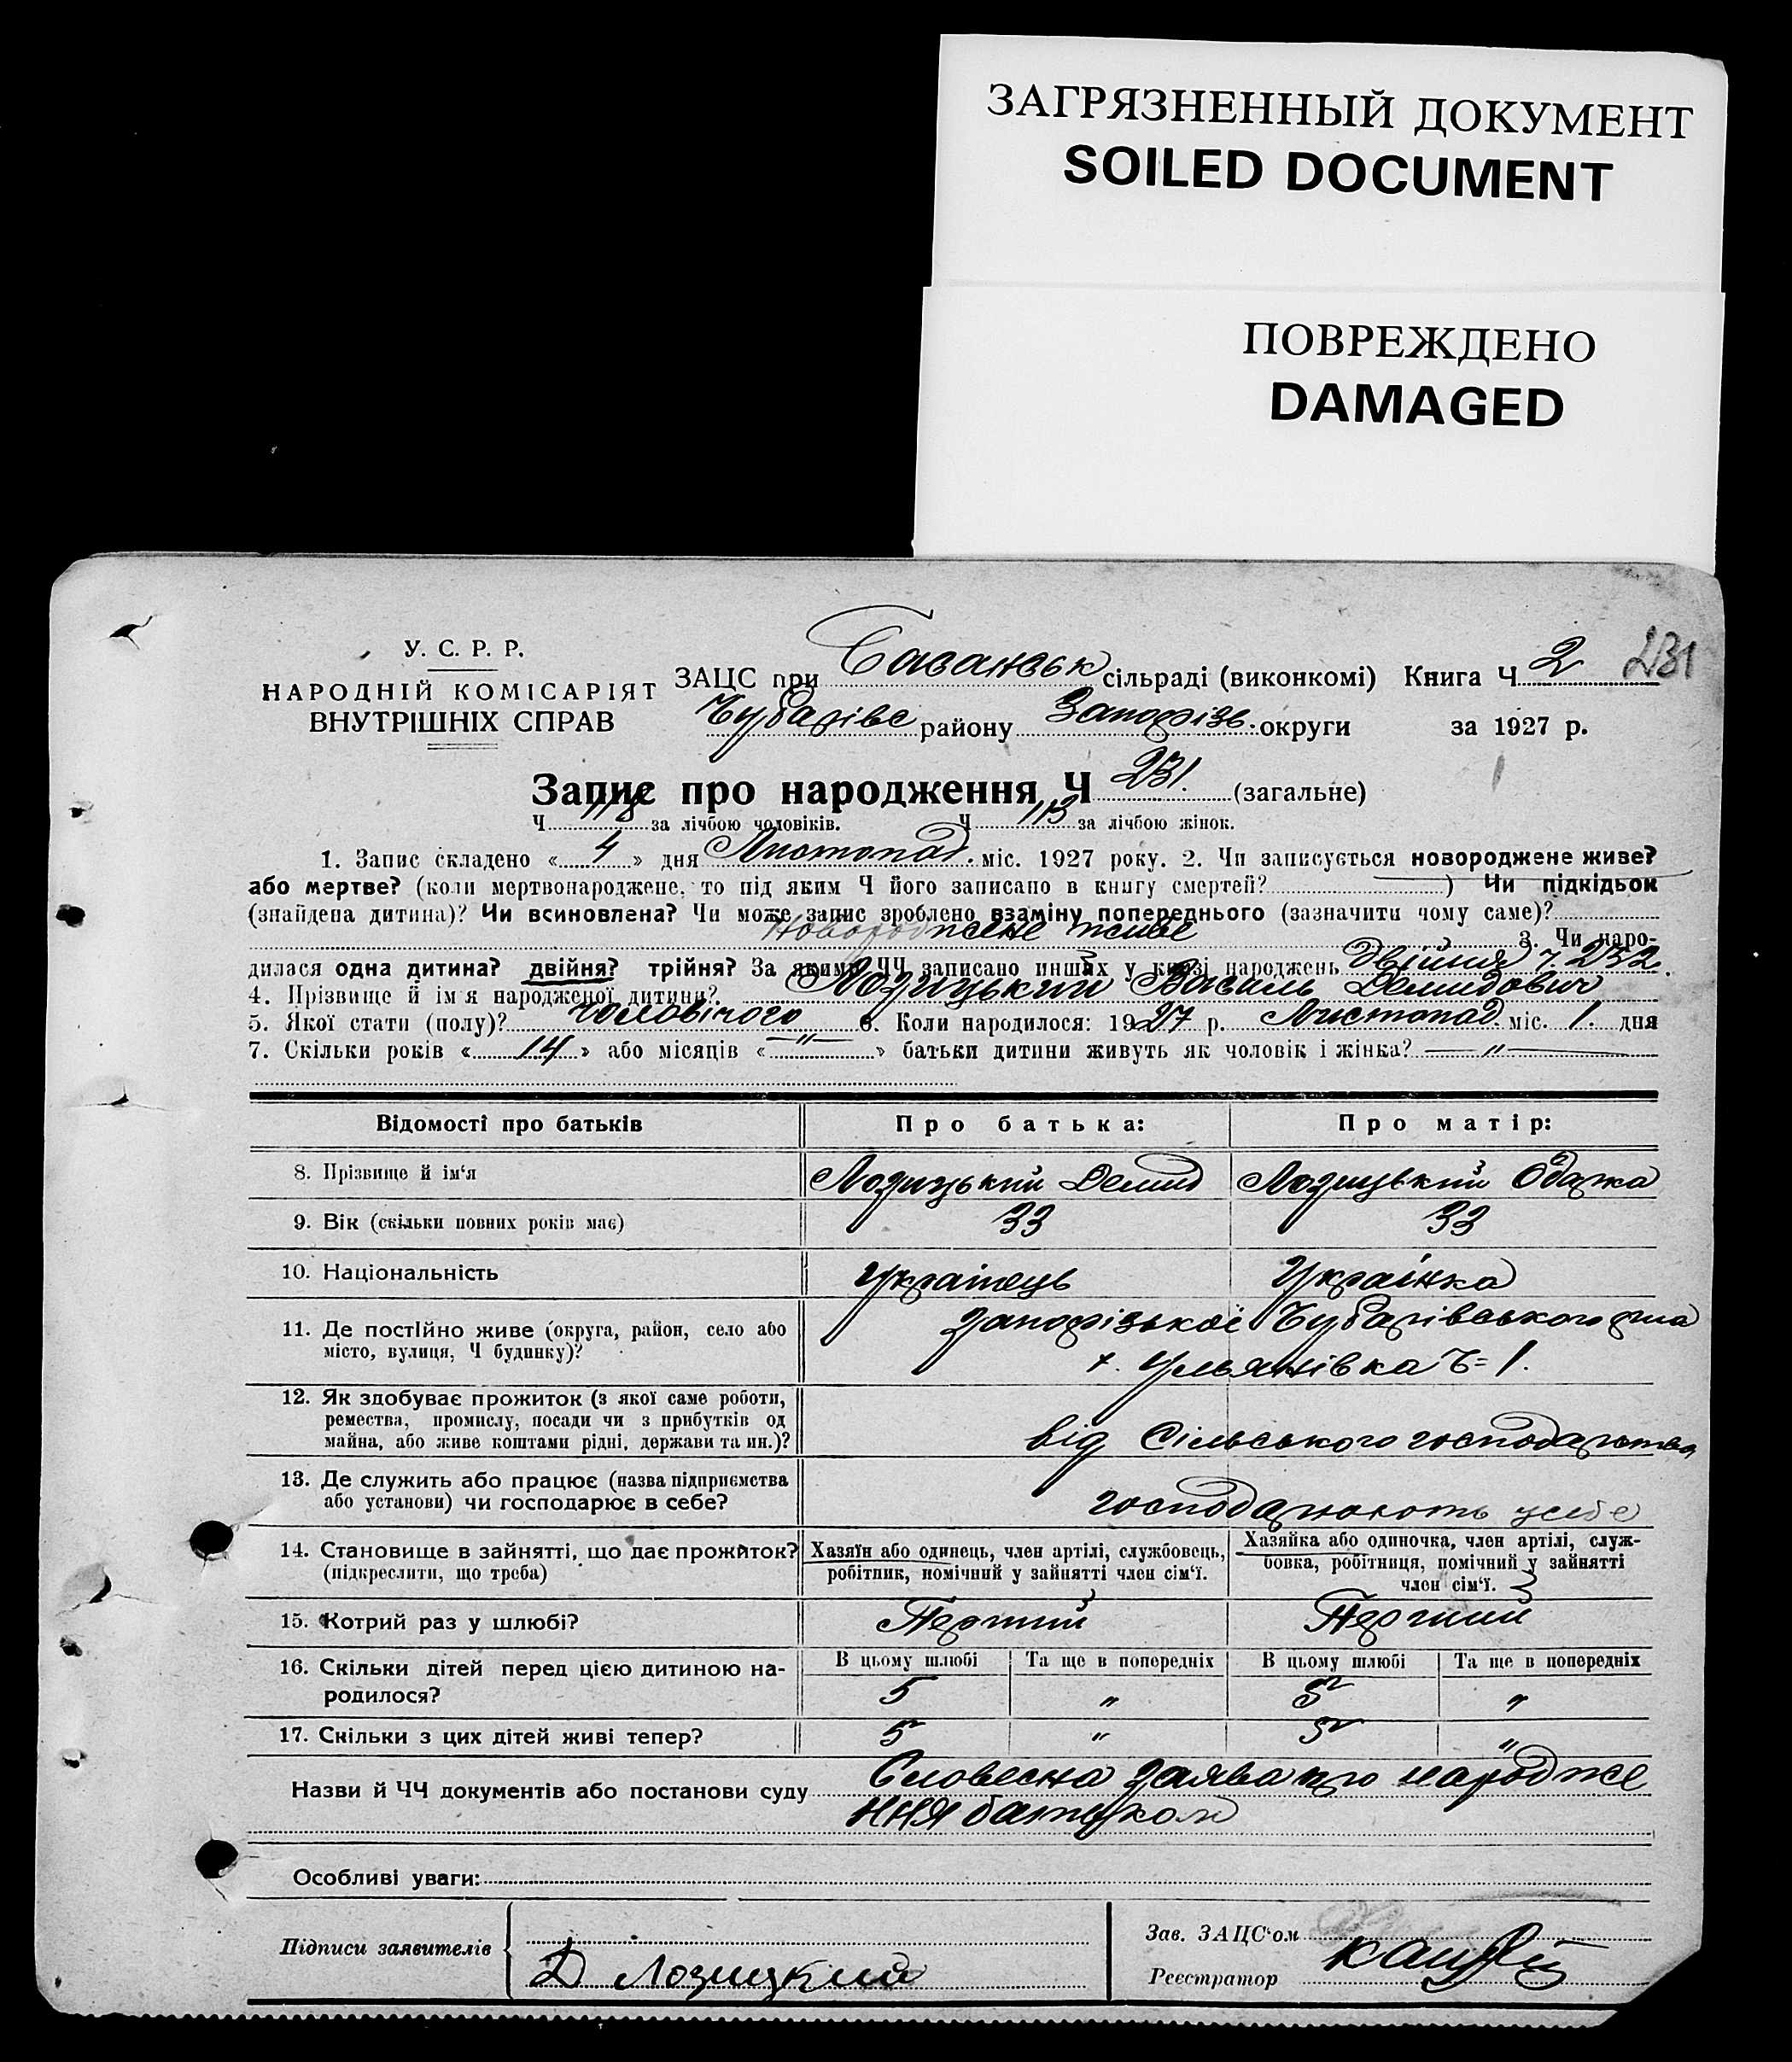 ЗАГРЯЗНЕННЫЙ ДОКУМЕНТ
SOILED DOCUMENT
ПОВРЕЖДЕНО
DAMAGED
У. С. Р. Р.
НАРОДНІЙ КОМІСАРІЯТ
ВНУТРІШНІХ СПРАВ
ЗАЦС при сільраді (виконкомі) Книга Ч 2 231
Чубарівс району Запоріз. округи за 1927 р.
Запис про народження Ч 231. (загальне)
Ч 118 за лічбою чоловіків. Ч 113 за лічбою жінок.
1. Запис складено « 4 » дня Листопад. міс. 1927 року. 2. Чи записується новороджене живе?
або мертве? (коли мертвонароджене, то під яким Ч його записано в книгу смертей? ) Чи підкідьок
(знайдена дитина)? Чи всиновлена? Чи може запис зроблено взаміну попереднього (зазначити чому саме)?
Новороджене живе 3. Чи наро-
дилася одна дитина? двійня? трійня? За якими ЧЧ записано инших у книзі народжень Двійня ч 232.
4. Прізвище й ім'я народженої дитини? Лозицький Василь Демидович
5. Якої стати (полу)? чоловічого 6. Коли народилося: 1927 р. Листопад. міс. 1. дня
7. Скільки років « 14 » або місяців « " » батьки дитини живуть як чоловік і жінка? "
Відомості про батьків Про батька: Про матір:
8. Прізвище й ім'я Лозицький Демид Лозицький Одажа
9. Вік (скільки повних років має) 33 33
10. Національність Українець Українка
11. Де постійно живе (округа, район, село або Запорізької Чубарівського р-на
місто, вулиця, Ч будинку)? х. Ульянівка Ч= 1.
12. Як здобуває прожиток (з якої саме роботи,
ремества, промислу, посади чи з прибутків од
майна, або живе коштами рідні, держави та ин.)? від Сільського господарства
13. Де служить або працює (назва підприємства
або установи) чи господарює в себе? господарюють у себе
14. Становище в зайнятті, що дає прожиток? Хазяїн або одинець, член артілі, службовець, Хазяйка або одиночка, член артілі, служ-
(підкреслити, що треба) робітник, помічний у зайнятті член сім'ї. бовка, робітниця, помічний у зайнятті
член сім'ї.
15. Котрий раз у шлюбі? Перший Перший
16. Скільки дітей перед цією дитиною на- В цьому шлюбі Та ще в попередніх В цьому шлюбі Та ще в попередніх
родилося? 5 " 5 "
17. Скільки з цих дітей живі тепер? 5 " 5 "
Назви й ЧЧ документів або постанови суду Словесна заява про народже
ння батьком
Особливі уваги:
Зав. ЗАЦС'ом
Підписи заявителів Д Лозицкий
Реєстратор